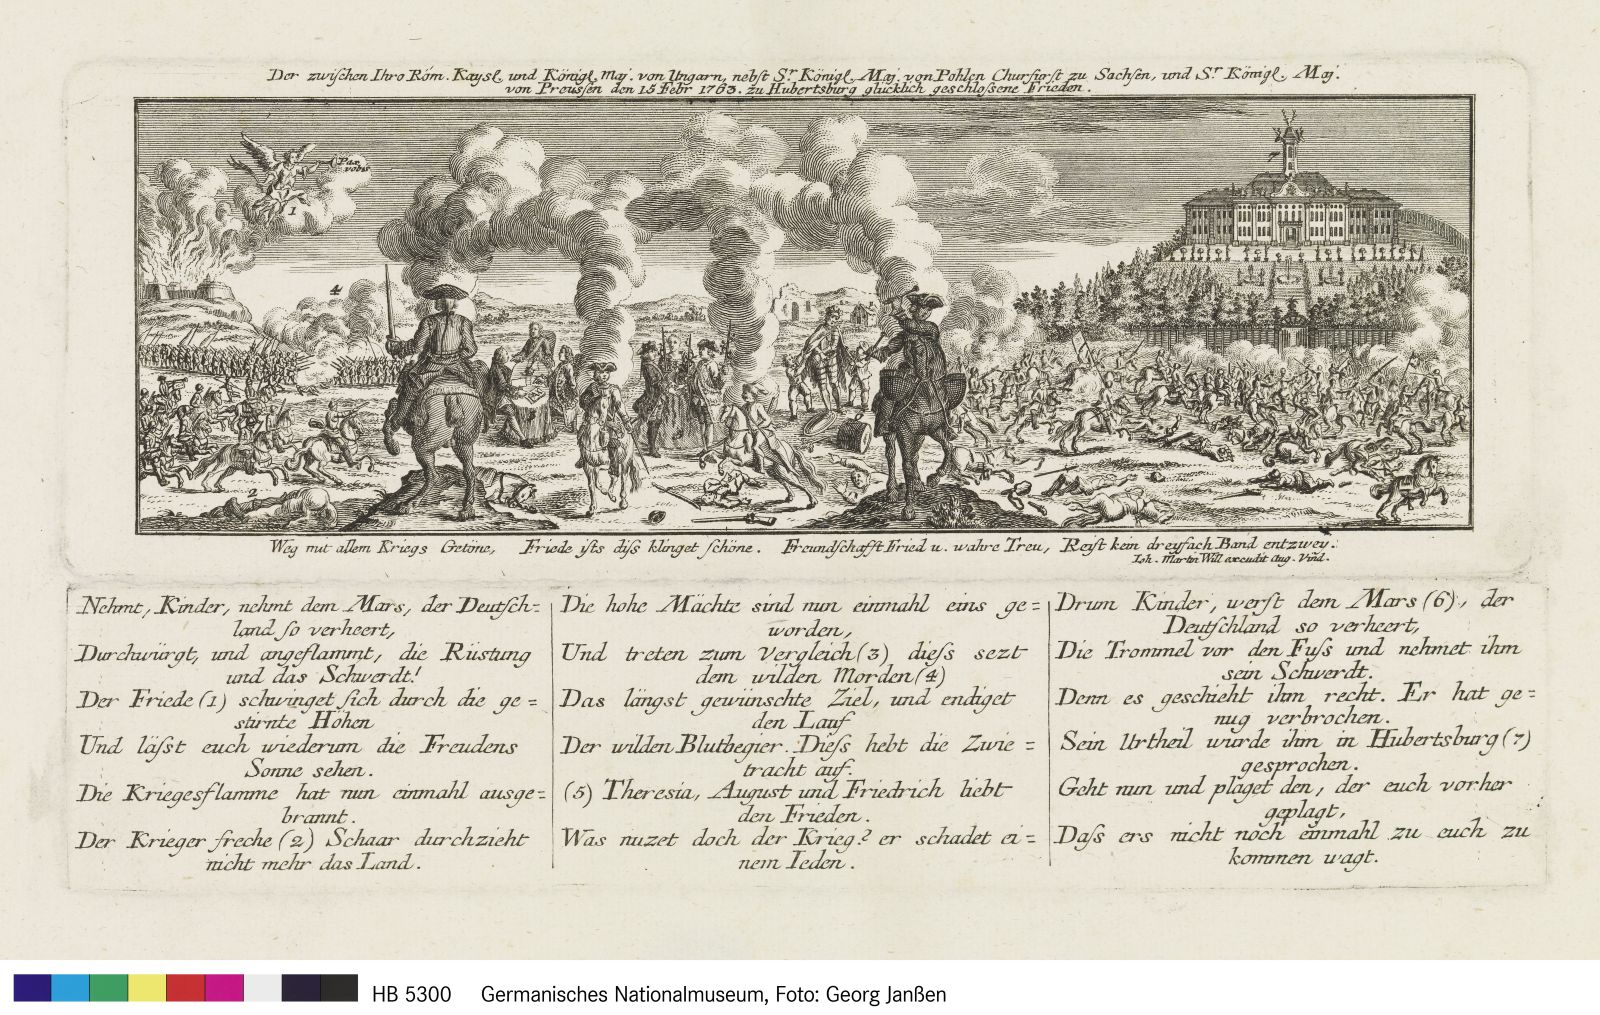 Der zwischen Ihro Röm. Kaysl. und Königl. Maj. von Ungarn, nebst Sr. Königl. Maj. von Pohlen Churfürst zu Sachsen, und Sr. Königl. Maj.
von Preussen den 15 Febr 1763. zu Hubertsburg glücklich geschlossene Frieden.
Pax
vobis
1
7
4
2
4
Weg mit allem Kriegs Getöne, Friede ists diss klinget schöne. Freundschafft Fried u. wahre Treu, Reist kein dreyfach Band entzwey.
Joh. Martin Will excudit Aug. Vind.
Nehmt, Kinder, nehmt dem Mars, der Deutsch=
land so verheert,
Durchwürgt, und angeflammt, die Rüstung
und das Schwerdt!
Der Friede (1) schwinget sich durch die ge=
stirnte Höhen
Und lässt euch wiederum die Freudens
Sonne sehen.
Die Kriegesflamme hat nun einmahl ausge=
brannt.
Der Krieger freche (2) Schaar durchzieht
nicht mehr das Land.
Die hohe Mächte sind nun einmahl eins ge=
worden,
Und treten zum Vergleich (3) diess sezt
dem wilden Morden (4)
Das längst gewünschte Ziel, und endiget
den Lauf
Der wilden Blutbegier. Diess hebt die Zwie=
tracht auf.
(5) Theresia, August und Friedrich liebt
den Frieden.
Was nuzet doch der Krieg? er schadet ei=
nem Ieden.
Drum Kinder, werft dem Mars (6), der
Deutschland so verheert,
Die Trommel vor den Fuss und nehmet ihm
sein Schwerdt.
Denn es geschieht ihm recht. Er hat ge=
nug verbrochen.
Sein Urtheil wurde ihm in Hubertsburg (7)
gesprochen.
Geht nun und plaget den, der euch vorher
geplagt,
Dass ers nicht noch einmahl zu euch zu
kommen wagt.
HB 5300 Germanisches Nationalmuseum, Foto: Georg Janßen